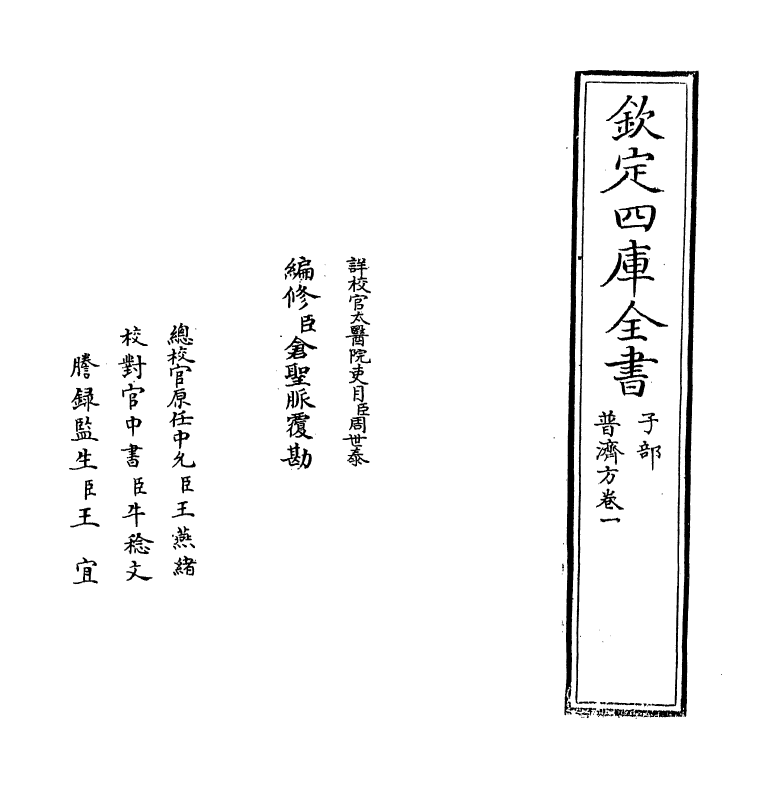 欽定四庫全書
子部
普濟方卷一
詳校官太醫院吏目臣周世泰
編修臣倉聖脈覆勘
總校官原任中允臣王燕緒
校對官中書臣牛稔文
謄録監生臣王宜